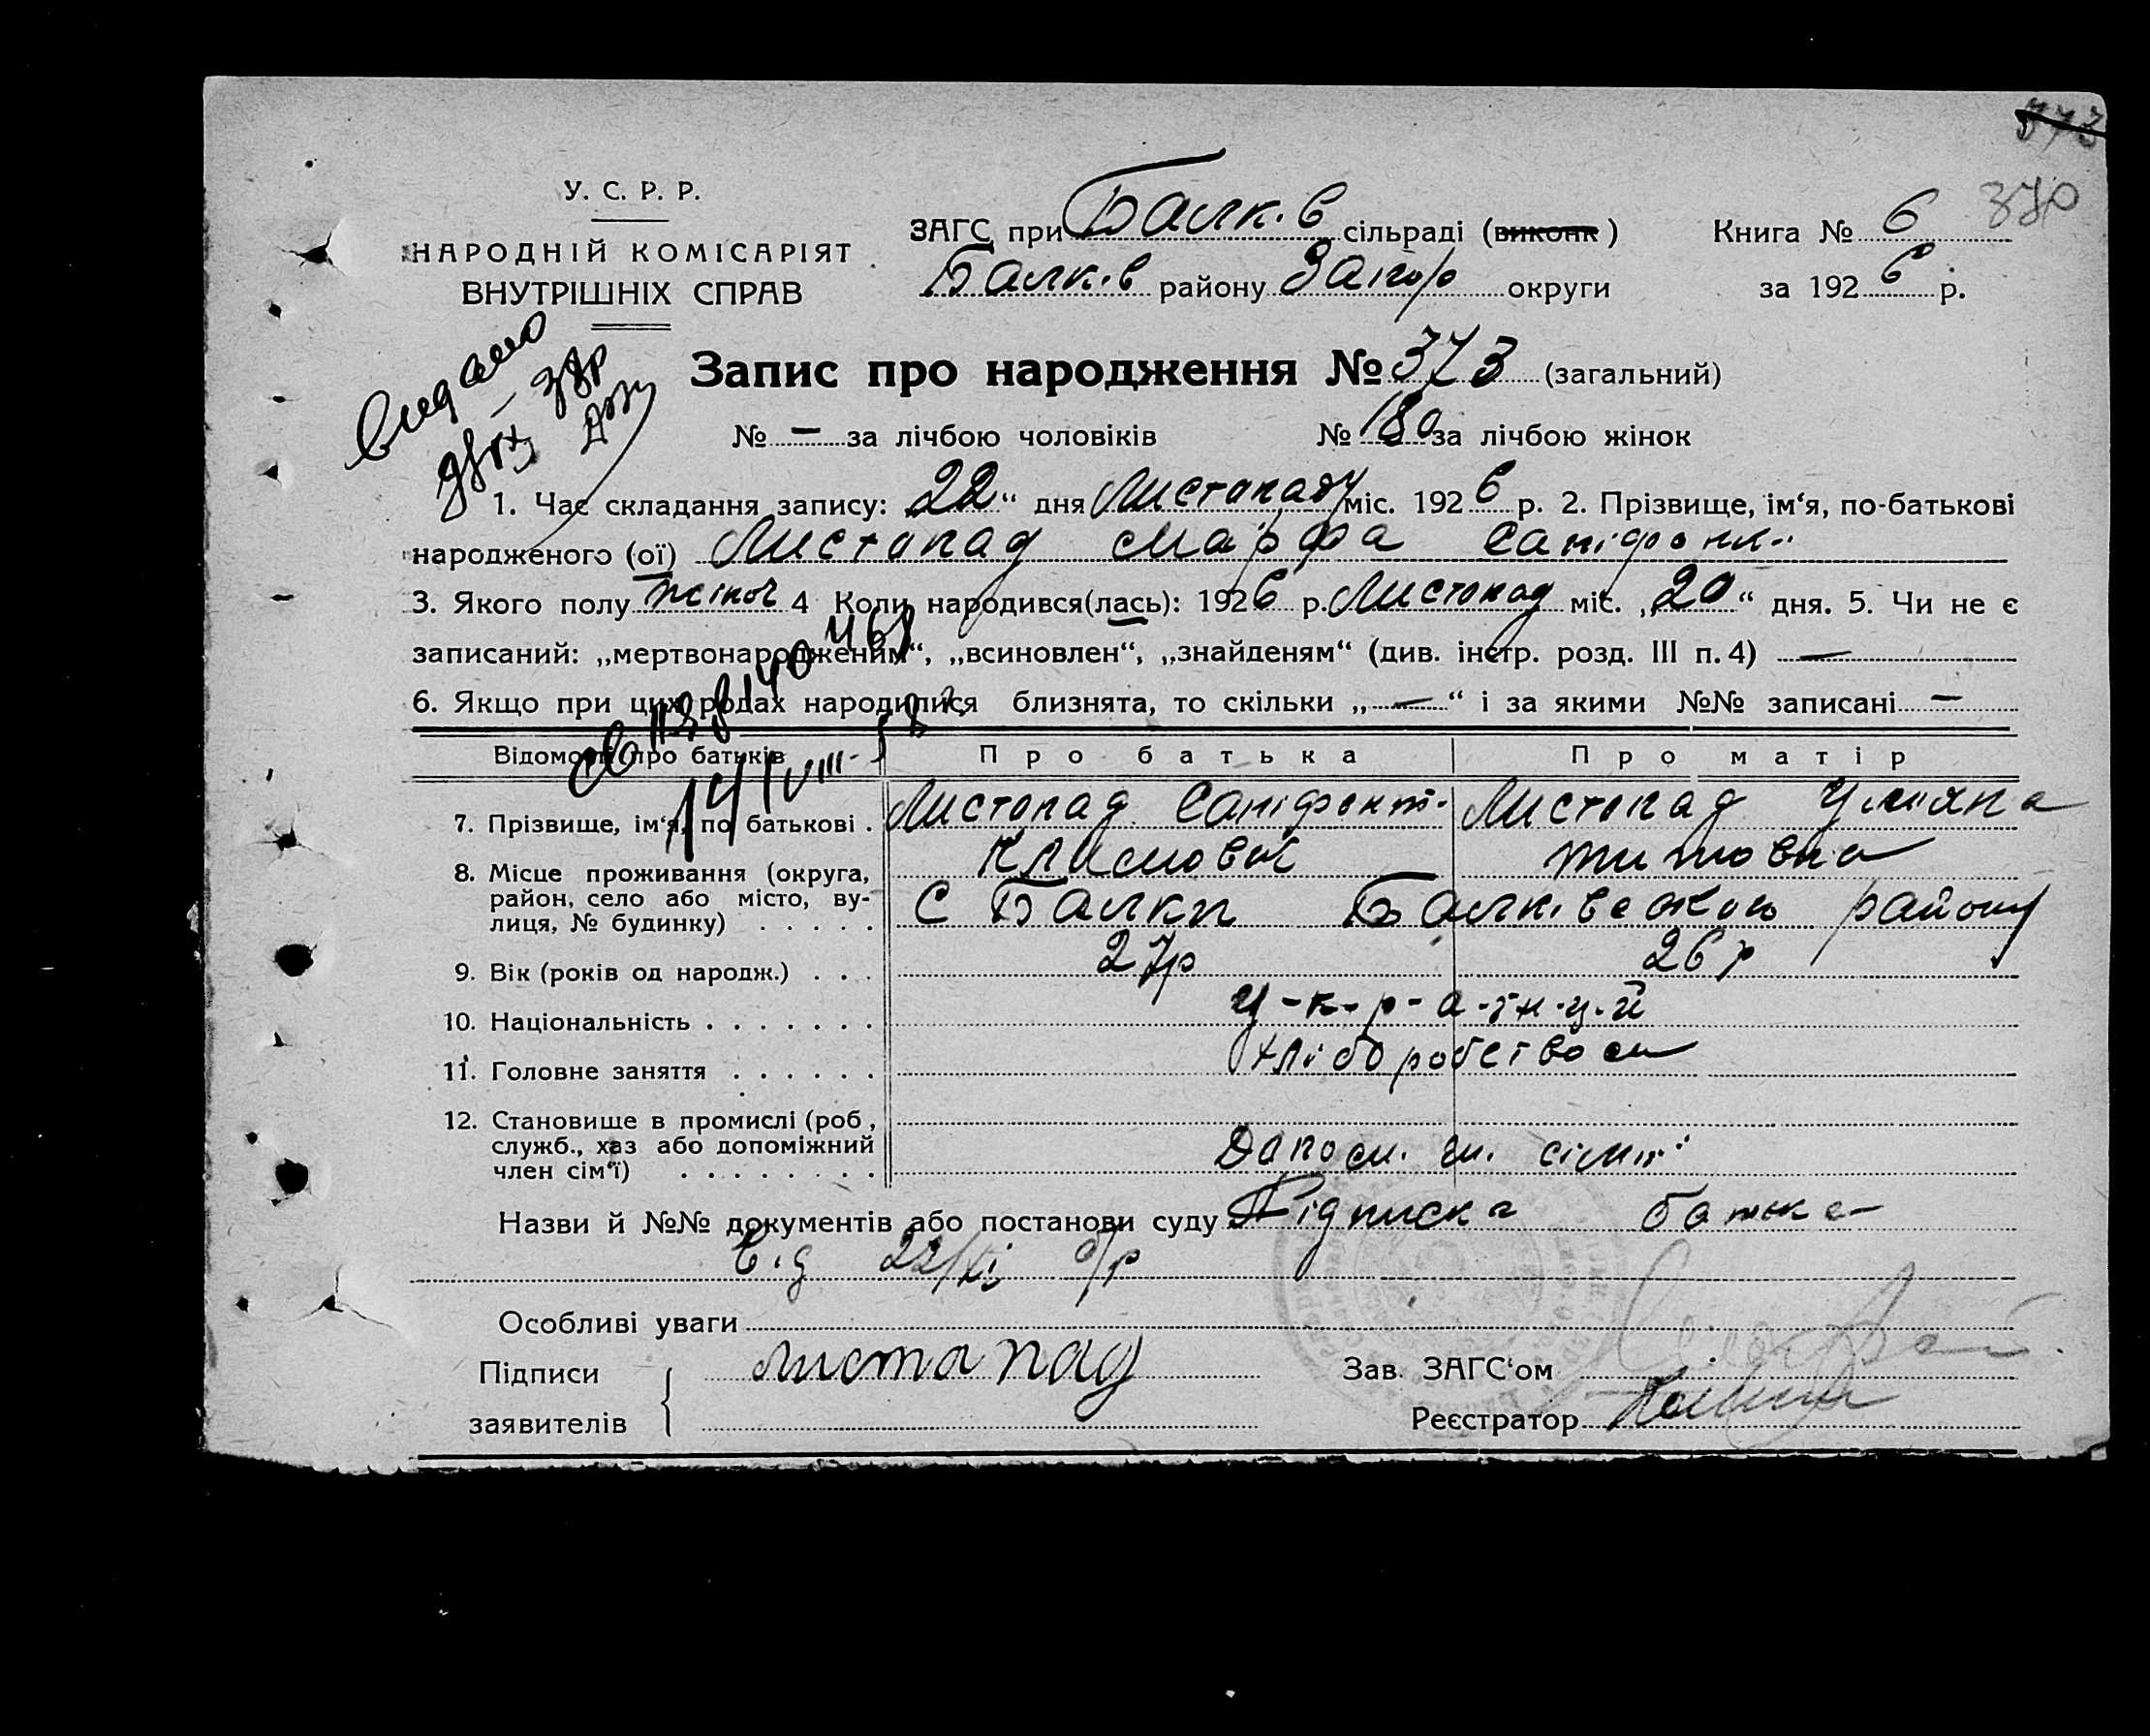 373
У. С. Р. Р.
ЗАГС при Балк.в сільраді (виконк) Книга № 6 370
НАРОДНІЙ КОМІСАРІЯТ
ВНУТРІШНІХ СПРАВ
Балк.в району Запор округи за 1926 р.
Видано
Запис про народження № 373 (загальний)
№ — за лічбою чоловіків № 180 за лічбою жінок
1. Час складання запису: „22“ дня Листопаду міс. 1926 р. 2. Прізвище, ім‘я, по-батькові
народженого (ої) Листопад Марфа
3. Якого полу жіноч 4 Коли народився(лась): 1926 р. Листопад міс. „20“ дня. 5. Чи не є
записаний: „мертвонародженим“, „всиновлен“, „знайденям“ (див. інстр. розд. III п. 4) —
6. Якщо при цих родах народилися близнята, то скільки „—“ і за якими №№ записані —
Відомости про батьків Про батька Про матір
7. Прізвище, ім‘я, по батькові . Листопад Саніфонт. Листопад Уляна
Климович Титовна
8. Місце проживання (округа,
район, село або місто, ву-
лиця, № будинку) . . . . . С Балки Балківського району
9. Вік (років од народж.) . . . 27р 26р
10. Національність . . . . . . . У-к-р-а-їн-ц-й
11. Головне заняття . . . . . . Хліборобством
12. Становище в промислі (роб,
служб., хаз або допоміжний
член сім‘ї) . . . . . . . . Допом. чл. сімї
Назви й №№ документів або постанови суду Підписка батька
від 22/XI б/р
Особливі уваги
Підписи Листопад Зав. ЗАГС‘ом
заявителів Реєстратор